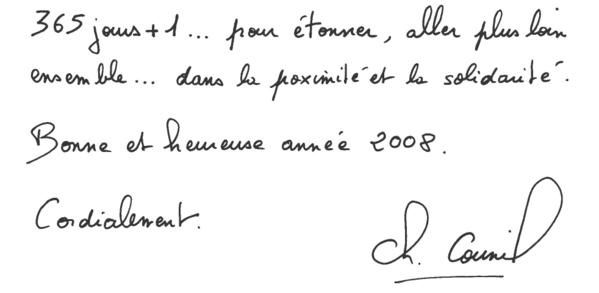 365 jours + 1 ... pour étonner, aller plus loin
ensemble ... dans la proximité et la solidarité.
Bonne et heureuse année 2008.
Cordialement.
Ch. Counil